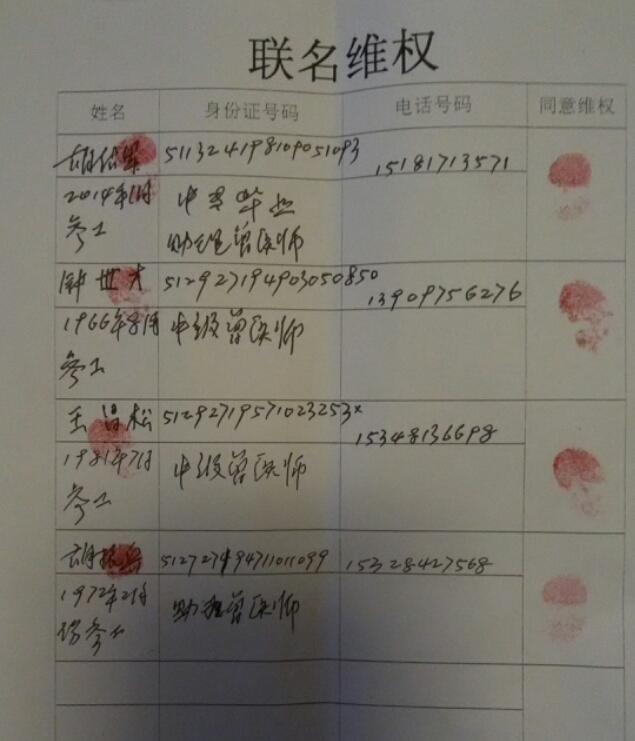 联名维权
姓名 身份证号码 电话号码 同意维权
511324198109051093 15181713571
2014年1月 中专毕业
参工 助理兽医师
世才 512927194903050850 13909756276
1966年8月 中级兽医师
参工
王昌松 51292719571023253x 15348136698
1981年7月 中级兽医师
参工
胡 512727194711011099 15328427568
1972年2月 助理兽医师
参工